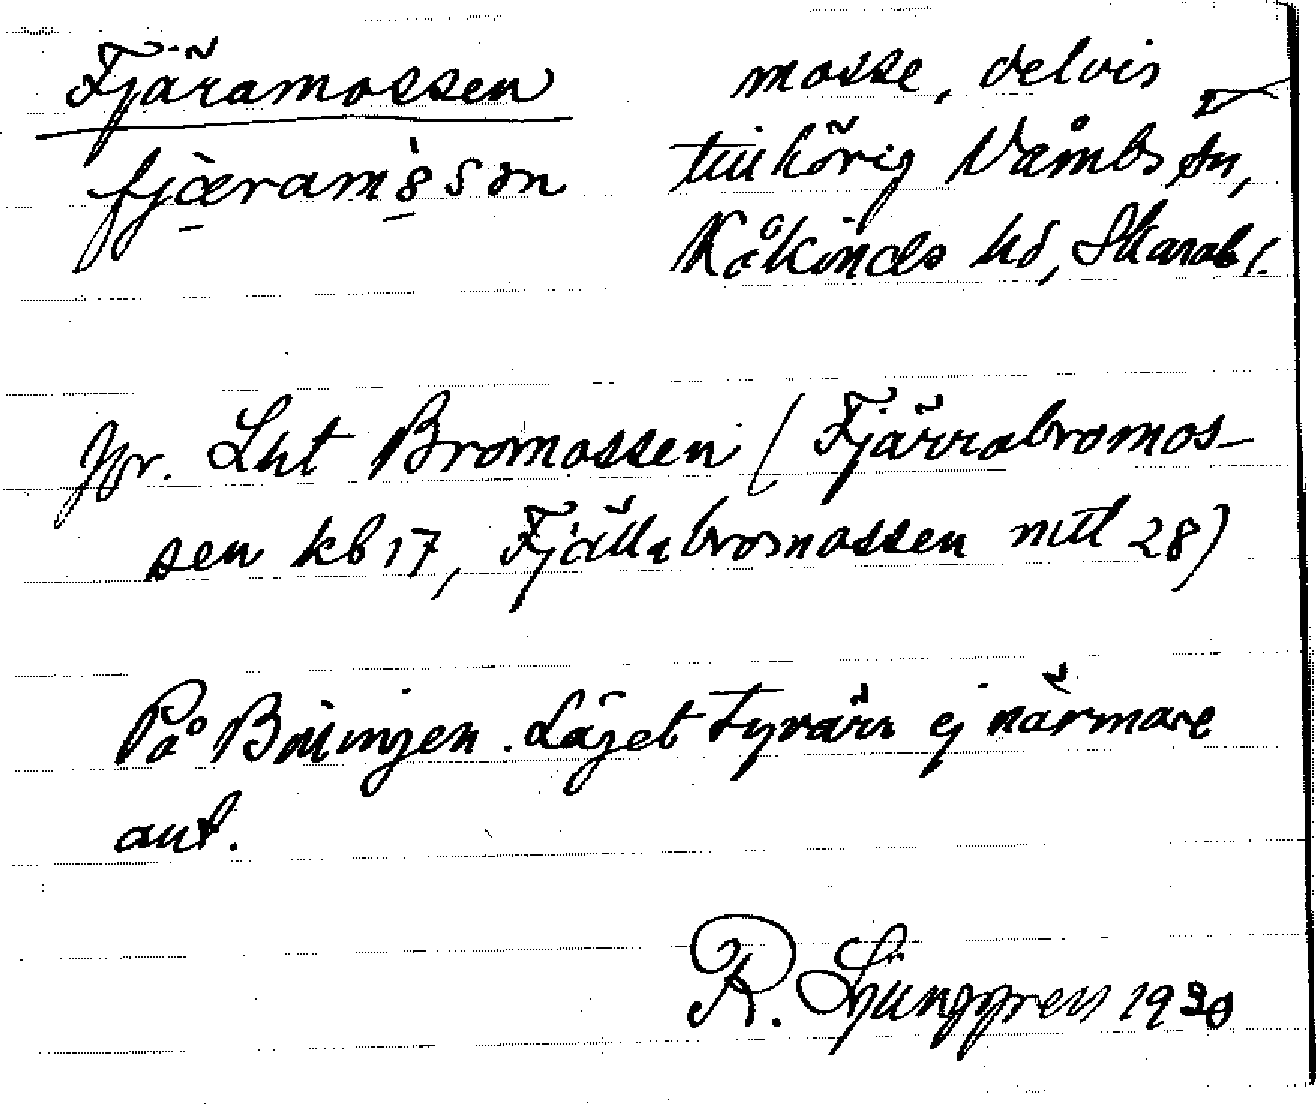 Fjäramossen
fjæram8son
mosse, delvis
tillhörig Våmbs sn,
Kåkinds hd, Skarab l.
Jfr. Lht Bromossen (Fjärrabromos-
sen kb 17, Fjällabromossen mtl 28)
På Billingen. Läget tyvärr ej närmare
ant.
R. Ljunggren 1930